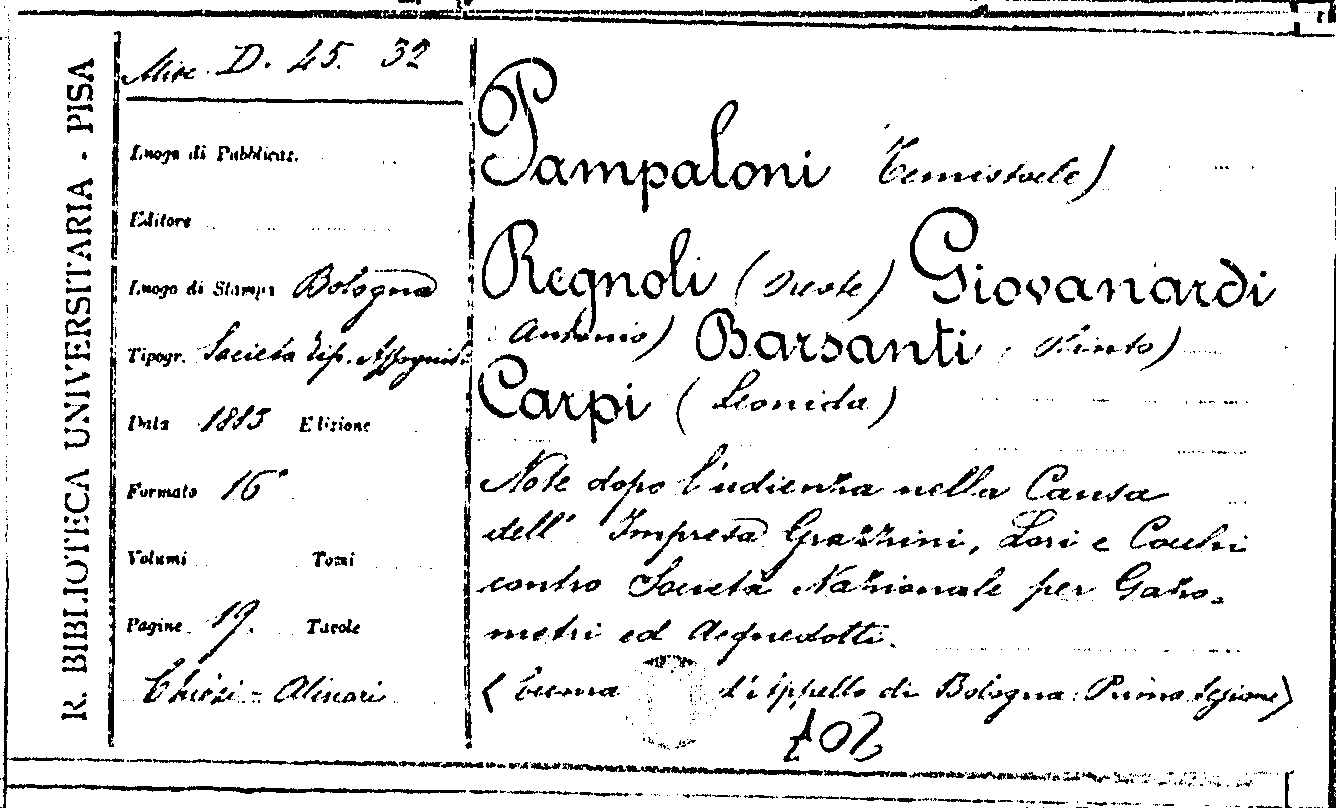 R. BIBLIOTECA UNIVERSITARIA - PISA
Misc. D. 45. 32
Luogo di Pubblicaz.
Editore
Luogo di Stampa Bologna
Tipogr. Società Tip. Azzoguidi
Data 1885 Edizione
Formato 16°
Volumi Tomi
Pagine 19. Tavole
Chiesi - Alinari
Pampaloni (Temistocle)
Regnoli (Oreste) Giovanardi
Antonio) Barsanti (Olinto)
Carpi (Leonida)
Note dopo l'udienza nella Causa
dell' Impresa Grazzini, Lori e Cocchi
contro Società Nazionale per Gazo-
metri ed Acquedotti.
d'Appello di Bologna: Prima Sezione)